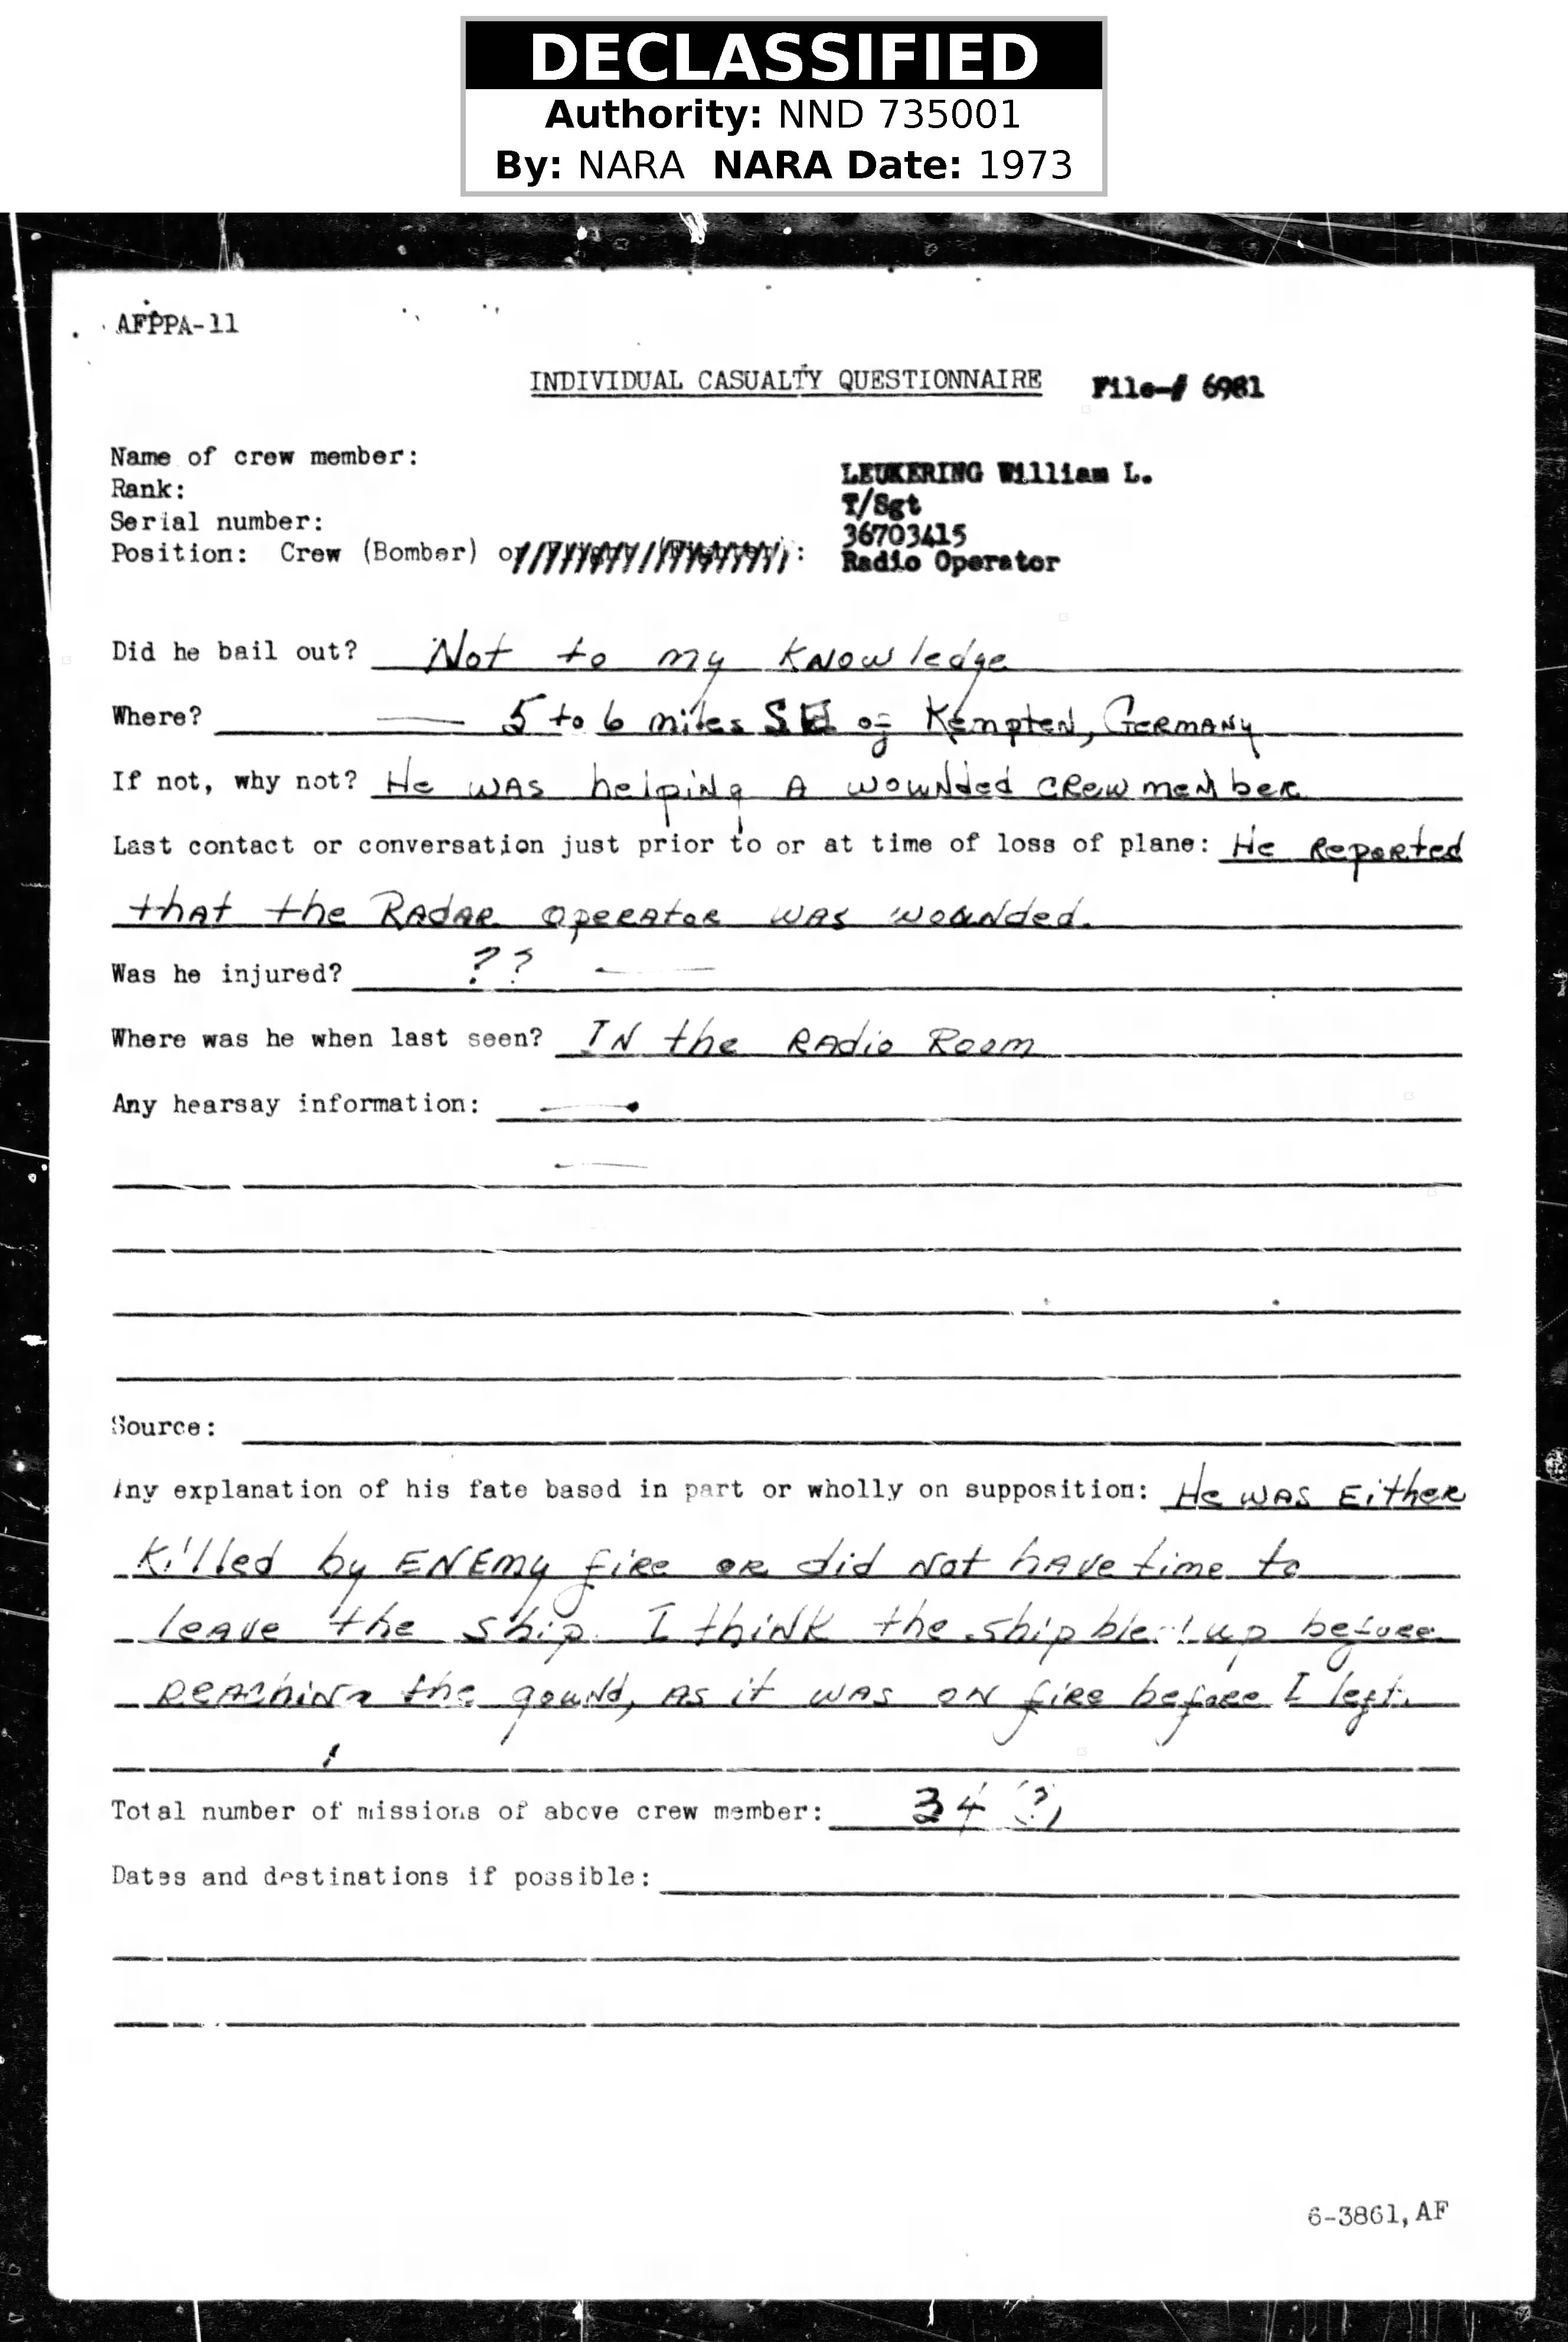 DECLASSIFIED
Authority: NND 735001
By: NARA NARA Date: 1973
AFPPA-11
INDIVIDUAL CASUALTY QUESTIONNAIRE File-# 6981
Name of crew member: LEUKERING William L.
Rank: T/Sgt
Serial number: 36703415
Position: Crew (Bomber) or : Radio Operator
Did he bail out? Not to my knowledge
Where? 5 to 6 miles SE of Kempten, Germany
If not, why not? He was helping a wounded crew member
Last contact or conversation just prior to or at time of loss of plane: He Reported
that the Radar operator was wounded.
Was he injured? ??
Where was he when last seen? IN the Radio Room
Any hearsay information:
Source:
Any explanation of his fate based in part or wholly on supposition: He was Either
Killed by ENEmy fire or did not have time to
leave the ship. I think the ship up before
reaching the gound, as it was on fire before I left.
Total number of missions of above crew member: 34 (?)
Dates and destinations if possible:
6-3861, AF